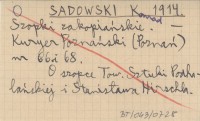 O SADOWSKI Konrad 1914.
Szopki zakopiańskie. —
Kuryer Poznański (Poznań)
nr 66 i 68.
O szopce Tow. Sztuki Podha-
lańskiej i Stanisława Hirschla.
BT/063/07-28